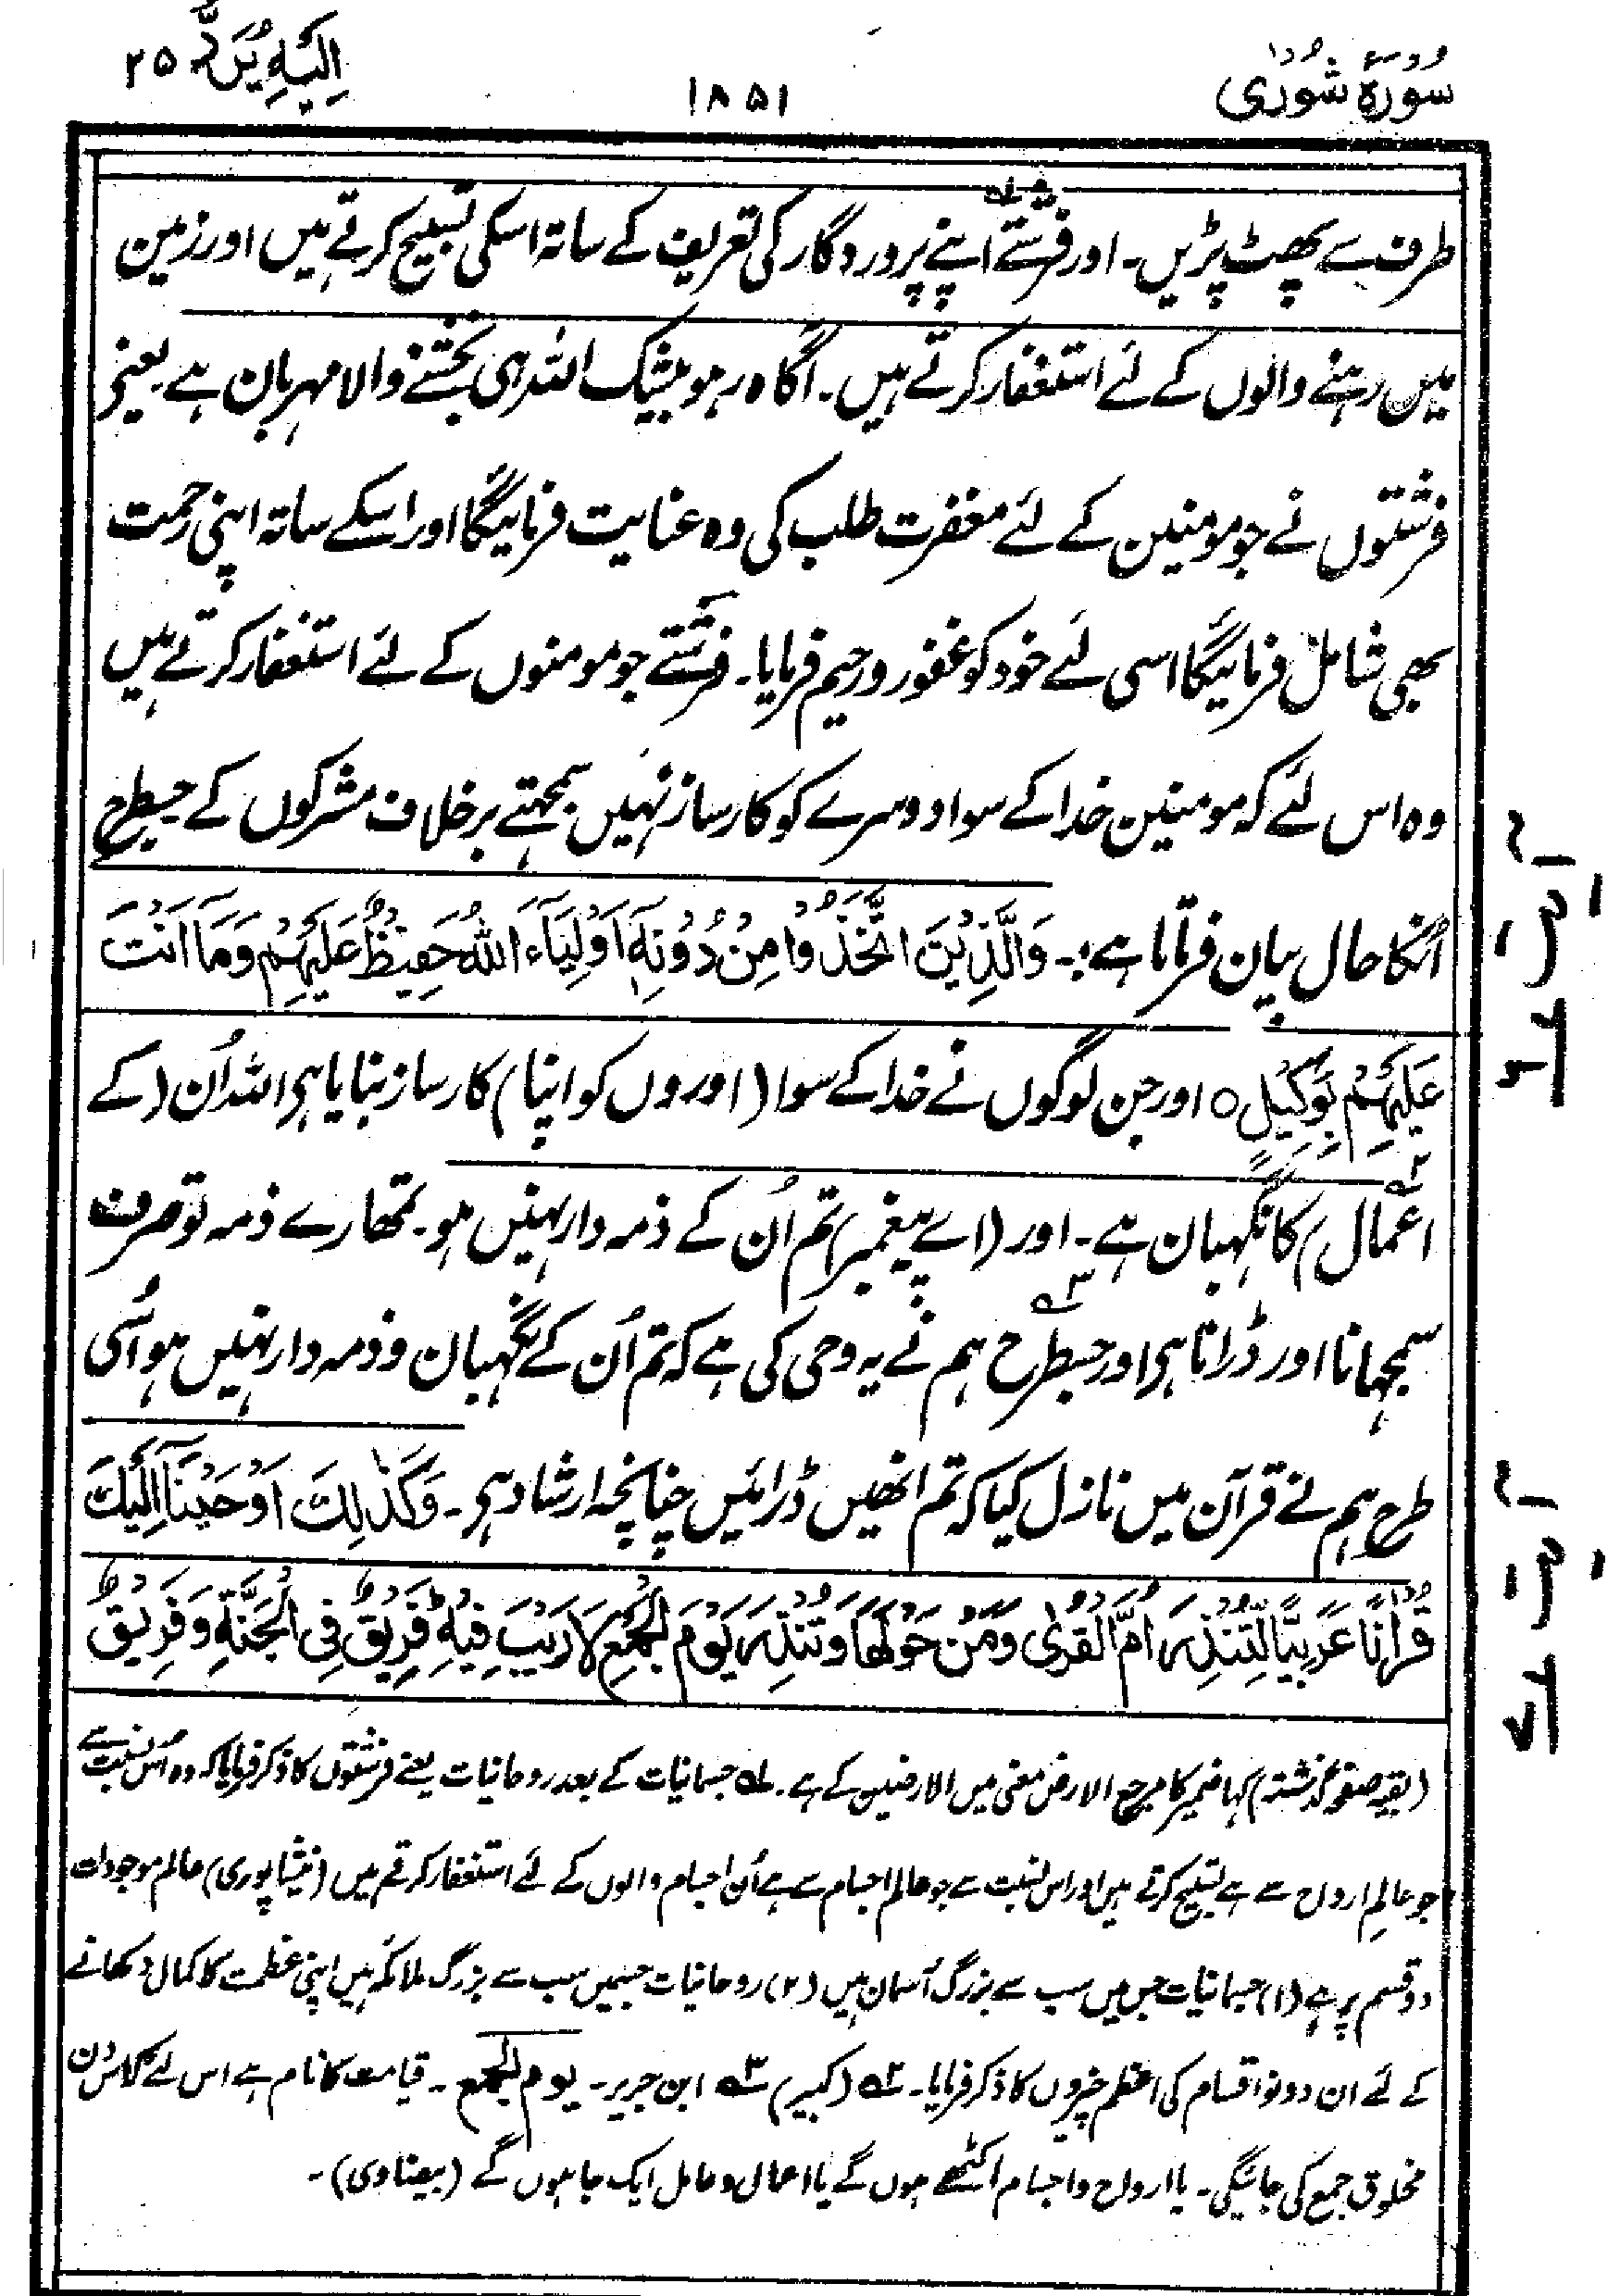 سورۃ شوریٰ
۱۸۵۱
اِلَیْہِ یُرَدُّ ۲۵
طرف سے پھٹ پڑیں۔ اور فرشتے اپنے پروردگار کی تعریف کے ساتہ اسکی تسبیح کرتے ہیں اور زمین
میں رہنے والوں کے لئے استغفار کرتے ہیں۔ آگاہ رہو بیشک اللہ ہی بخشنے والا مہربان ہے یعنی
فرشتوں نے جو مومنین کے لئے مغفرت طلب کی وہ عنایت فرمائیگا اور اسکے ساتہ اپنی رحمت
بھی شامل فرمائیگا اسی لئے خود کو غفور و رحیم فرمایا۔ فرشتے جو مومنوں کے لئے استغفار کرتے ہیں
وہ اس لئے کہ مومنین خدا کے سوا دوسرے کو کارساز نہیں سمجھتے برخلاف مشرکوں کے جسطرح
اُنکا حال بیان فرماتا ہے:۔ وَالَّذِیْنَ اتَّخَذُوْا مِنْ دُوْنِہٖٓ اَوْلِیَآءَ اللّٰہُ حَفِیْظٌ عَلَیْہِمْ وَمَآ اَنْتَ
عَلَیْہِمْ بِوَکِیْلٍ ○ اور جن لوگوں نے خدا کے سوا (اوروں کو اپنا) کارساز بنایا ہی اللہ اُن (کے
اعمال) کا نگہبان ہے۔ اور (اے پیغمبر) تم اُن کے ذمہ دار نہیں ہو۔ تمھارے ذمہ تو صرف
سمجہانا اور ڈرانا ہی اور جسطرح ہم نے یہ وحی کی ہے کہ تم اُن کے نگہبان و ذمہ دار نہیں ہو اُسی
طرح ہم نے قرآن میں نازل کیا کہ تم انھیں ڈرائیں چنانچہ ارشاد ہی۔ وَکَذٰلِکَ اَوْحَیْنَآ اِلَیْکَ
قُرْاٰنًا عَرَبِیًّا لِّتُنْذِرَ اُمَّ الْقُرٰی وَمَنْ حَوْلَھَا وَتُنْذِرَ یَوْمَ الْجَمْعِ لَا رَیْبَ فِیْہِ فَرِیْقٌ فِی الْجَنَّۃِ وَفَرِیْقٌ
(بقیہ صفحہ گزشتہ) کہا ضمیر کا مرجع الارض معنی میں الارضین کے ہے۔ ؎۱ جسمانیات کے بعد روحانیات یعنے فرشتوں کا ذکر فرمایا کہ وہ اُس نسبت سے
جو عالمِ ارواح سے ہے تسبیح کرتے ہیں اور اس نسبت سے جو عالم اجسام سے ہے اُن اجسام والوں کے لئے استغفار کرتے ہیں (نیشاپوری) عالم موجودات
دو قسم پر ہے (۱) جسمانیات جس میں سب سے بزرگ آسمان ہیں (۲) روحانیات جسمیں سب سے بزرگ ملائکہ ہیں اپنی عظمت کا کمال دکھانے
کے لئے ان دونو اقسام کی اعظم چیزوں کا ذکر فرمایا۔ ؎۲ (کبیر) ؎۳ ابن جریر۔ یوم الجمع۔ قیامت کا نام ہے اس لئے کہ اس دن
مخلوق جمع کی جائیگی۔ یا ارواح و اجسام اکٹھے ہوں گے یا اعمال و عامل ایک جا ہوں گے (بیضاوی)۔